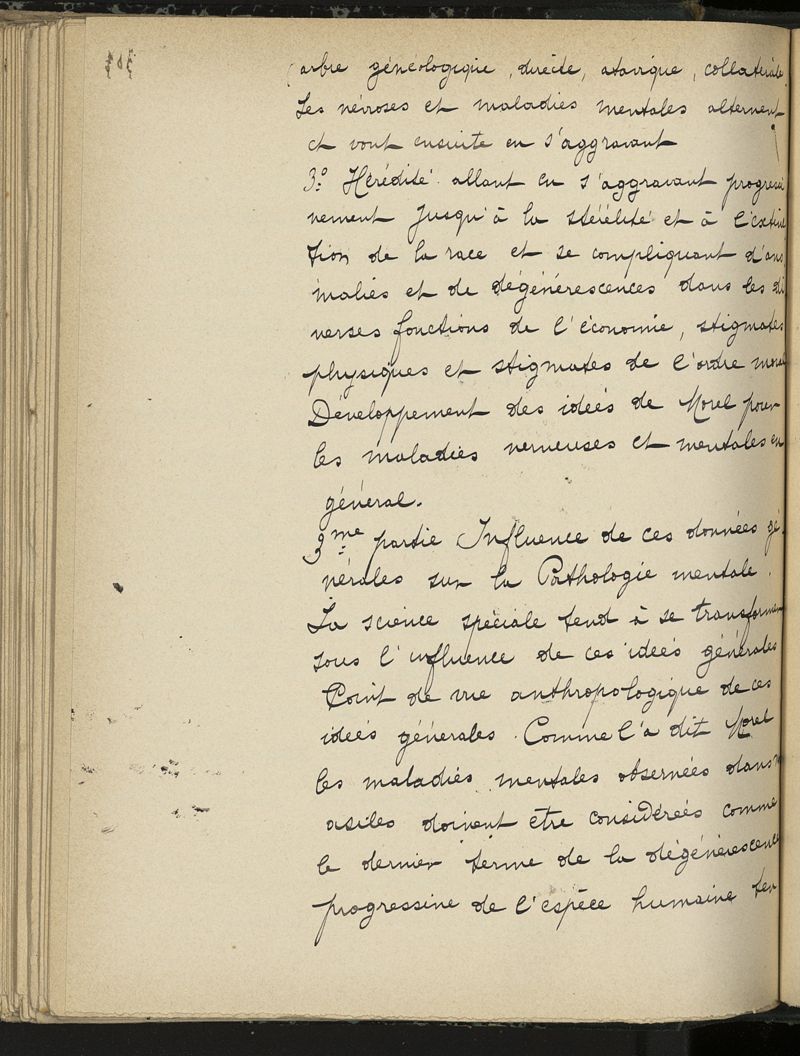 (arbre généologique, directe, atavique, collatérale.
Les névroses et maladies mentales alternent
et vont ensuite en s'aggravant
3º Hérédité allant en s'aggravant progressi
vement jusqu'à la stérélité et à l'extinc
tion de la race et se compliquant d'ano
malies et de dégénérescences dans les di
verses fonctions de l'économie, stigmates
physiques et stigmates de l'ordre moral
Développement des idées de Morel pour
les maladies nerveuses et mentales en
général.
3me partie Influence de ces données gé
nérales sur la Pathologie mentale.
La science spéciale tend à se transformer
sous l'influence de ces idées générales
Point de vue anthropologique de ces
idées générales. Comme l'a dit Morel
les maladies mentales observées dans
asiles doivent être considérées comme
le dernier terme de la dégénérescence
progressive de l'espèce humaine ten